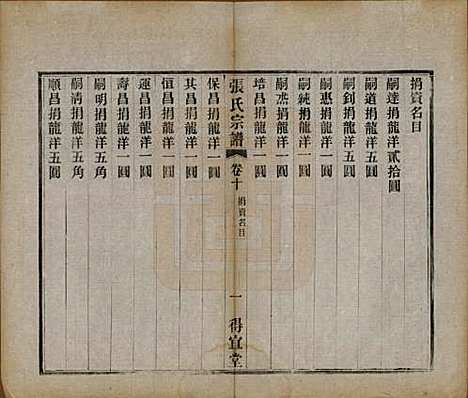 捐資名目
嗣達捐龍洋貳拾圓
嗣道捐龍洋五圓
嗣釗捐龍洋五圓
嗣惠捐龍洋一圓
嗣純捐龍洋一圓
嗣捐龍洋一圓
培昌捐龍洋一圓
張氏宗譜
卷十
捐資名目
一
得宜堂
保昌捐龍洋一圓
其昌捐龍洋一圓
恒昌捐龍洋一圓
運昌捐龍洋一圓
壽昌捐龍洋一圓
嗣明捐龍洋五角
嗣清捐龍洋五角
順昌捐龍洋五圓